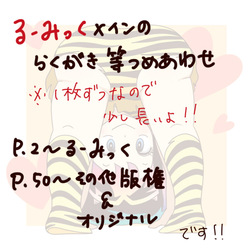 るーみっくメインの
らくがき 等つめあわせ
※1枚ずつなので
少し長いよ!!
P.2~るーみっく
P.50~その他版権
&
オリジナル
です!!